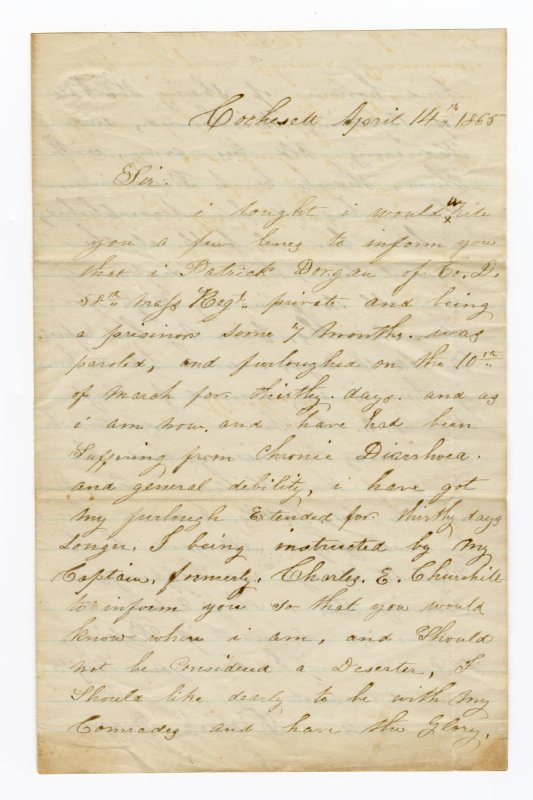 Cochesett April 14th 1865
Sir.
i tought i would write
you a few lines to inform you
that i Patrick Dorgan of Co. D.
58th Mass Regt. private and being
a prisinor some 7 months. was
paroled, and furloughed on the 10th
of March for thirthy days. and as
i am now. and have had been
Suffering from Chronic Diarrhoea.
and general debility, i have got
my furlough Extended for thirthy days
Longer. I being instructed by my
Captain, formerly, Charles. E. Churchill
to inform you so that you would
know where i am, and Should
not be Considered a Deserter, I
Should like dearly to be with my
Comrades and have the Glory,